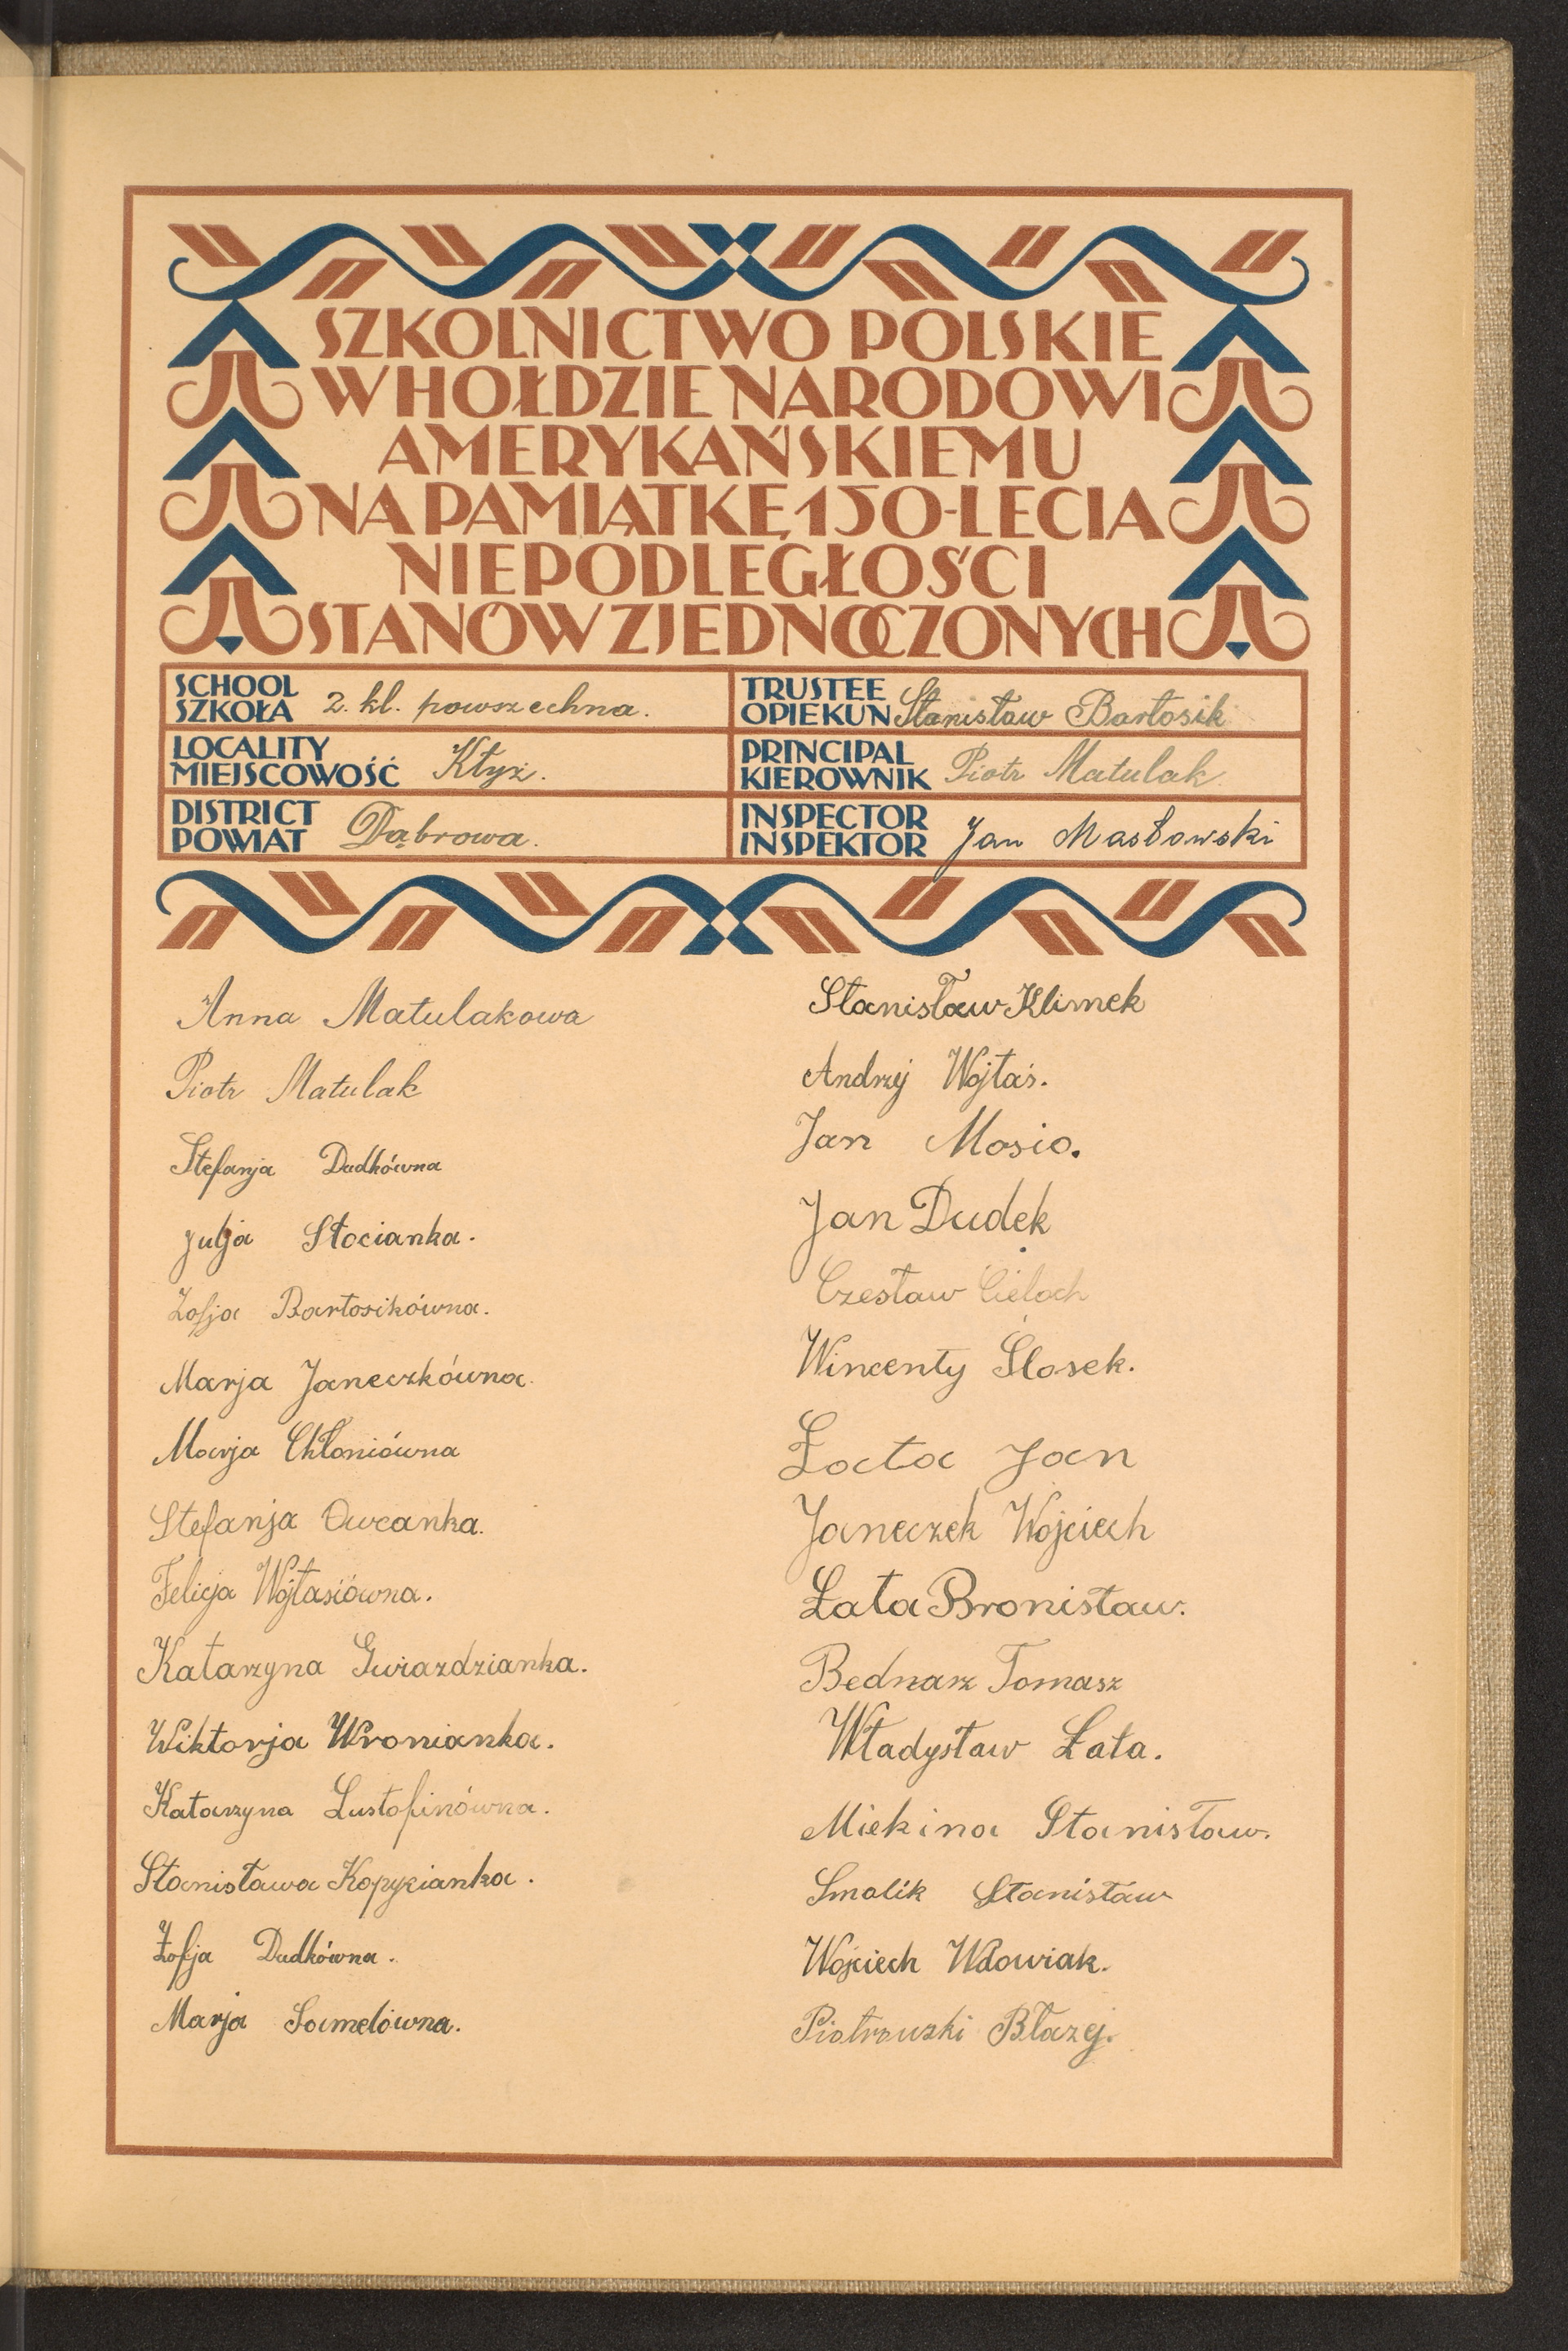 SZKOLNICTWO POLSKIE
W HOŁDZIE NARODOWI
AMERYKAŃSKIEMU
NA PAMIĄTKĘ 150-LECIA
NIEPODLEGŁOŚCI
STANÓW ZJEDNOCZONYCH
SCHOOL
SZKOŁA 2. kl. powszechna.
TRUSTEE
OPIEKUN Stanisław Bartosik
LOCALITY
MIEJSCOWOŚĆ Kłyż.
PRINCIPAL
KIEROWNIK Piotr Matulak
DISTRICT
POWIAT Dąbrowa.
INSPECTOR
INSPEKTOR Jan Masłowski
Anna Matulakowa
Piotr Matulak
Stefanja Dudkówna
Julja Stocianka.
Zofja Bartosikówna.
Marja Janeczkówna.
Marja Chłoniówna
Stefanja Owcanka.
Felicja Wojtasiówna.
Katarzyna Gwiazdzianka.
Wiktorja Wronianka.
Katarzyna Lustofinówna.
Stanisława Kopycianka.
Zofja Dudkówna.
Marja Samelówna.
Stanisław Klimek
Andrzej Wojtaś.
Jan Mosio.
Jan Dudek
Czesław Cieloch
Wincenty Slosek.
Łata Jan
Janeczek Wojciech
Łata Bronisław.
Bednarz Tomasz
Władysław Łata.
Miekina Stanisław.
Smalik Stanisław
Wojciech Wdowiak.
Piotrowski Błazej.